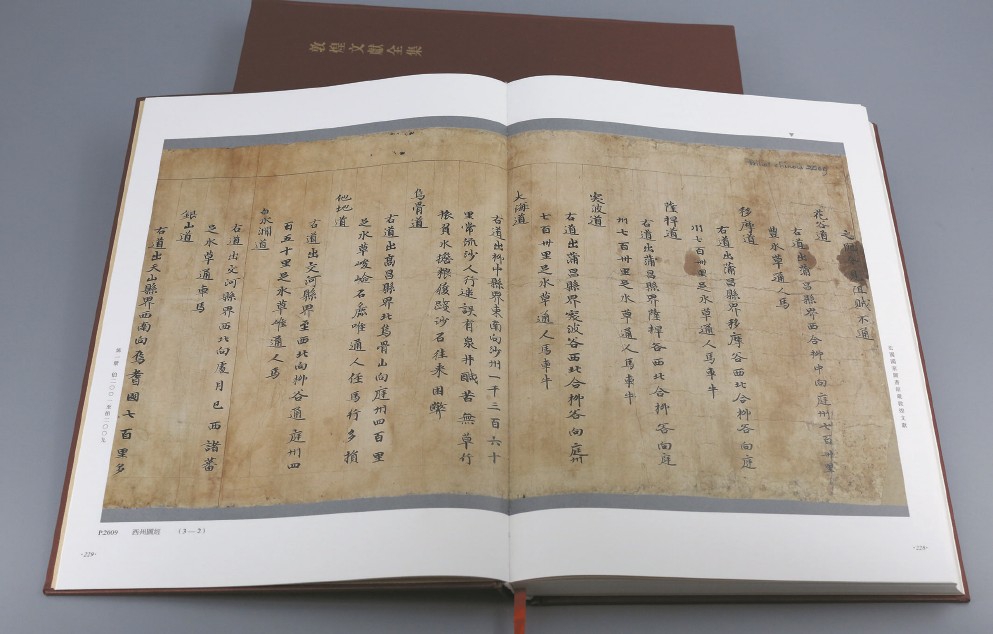 敦煌文獻全集
道賊不通
花谷道
右道出蒲昌縣界西合柳中向庭州七百卅里
豐水草通人馬
移摩道
右道出蒲昌縣界移摩谷西北合柳谷向庭
州七百卅里足水草通人馬車牛
薩捍道
右道出蒲昌縣界薩捍谷西北合柳谷向庭
州七百卅里足水草通人馬車牛
突波道
右道出蒲昌縣界突波谷西北合柳谷向庭州
七百卅里足水草通人馬車牛
大海道
右道出柳中縣界東南向沙州一千三百六十
里常流沙人行迷誤有泉井鹹苦無草行
旅負水擔糧履踐沙石往來困弊
烏骨道
右道出高昌縣界北烏骨山向庭州四百里
足水草峻嶮石麁唯通人徑馬行多損
他地道
右道出交河縣界至西北向柳谷通庭州四
百五十里足水草唯通人馬
白水澗道
右道出交河縣界西北向處月已西諸蕃
足水草通車馬
銀山道
右道出天山縣界西南向焉耆國七百里多
P.2009 西州圖經 (3—2)
·229·
·228·